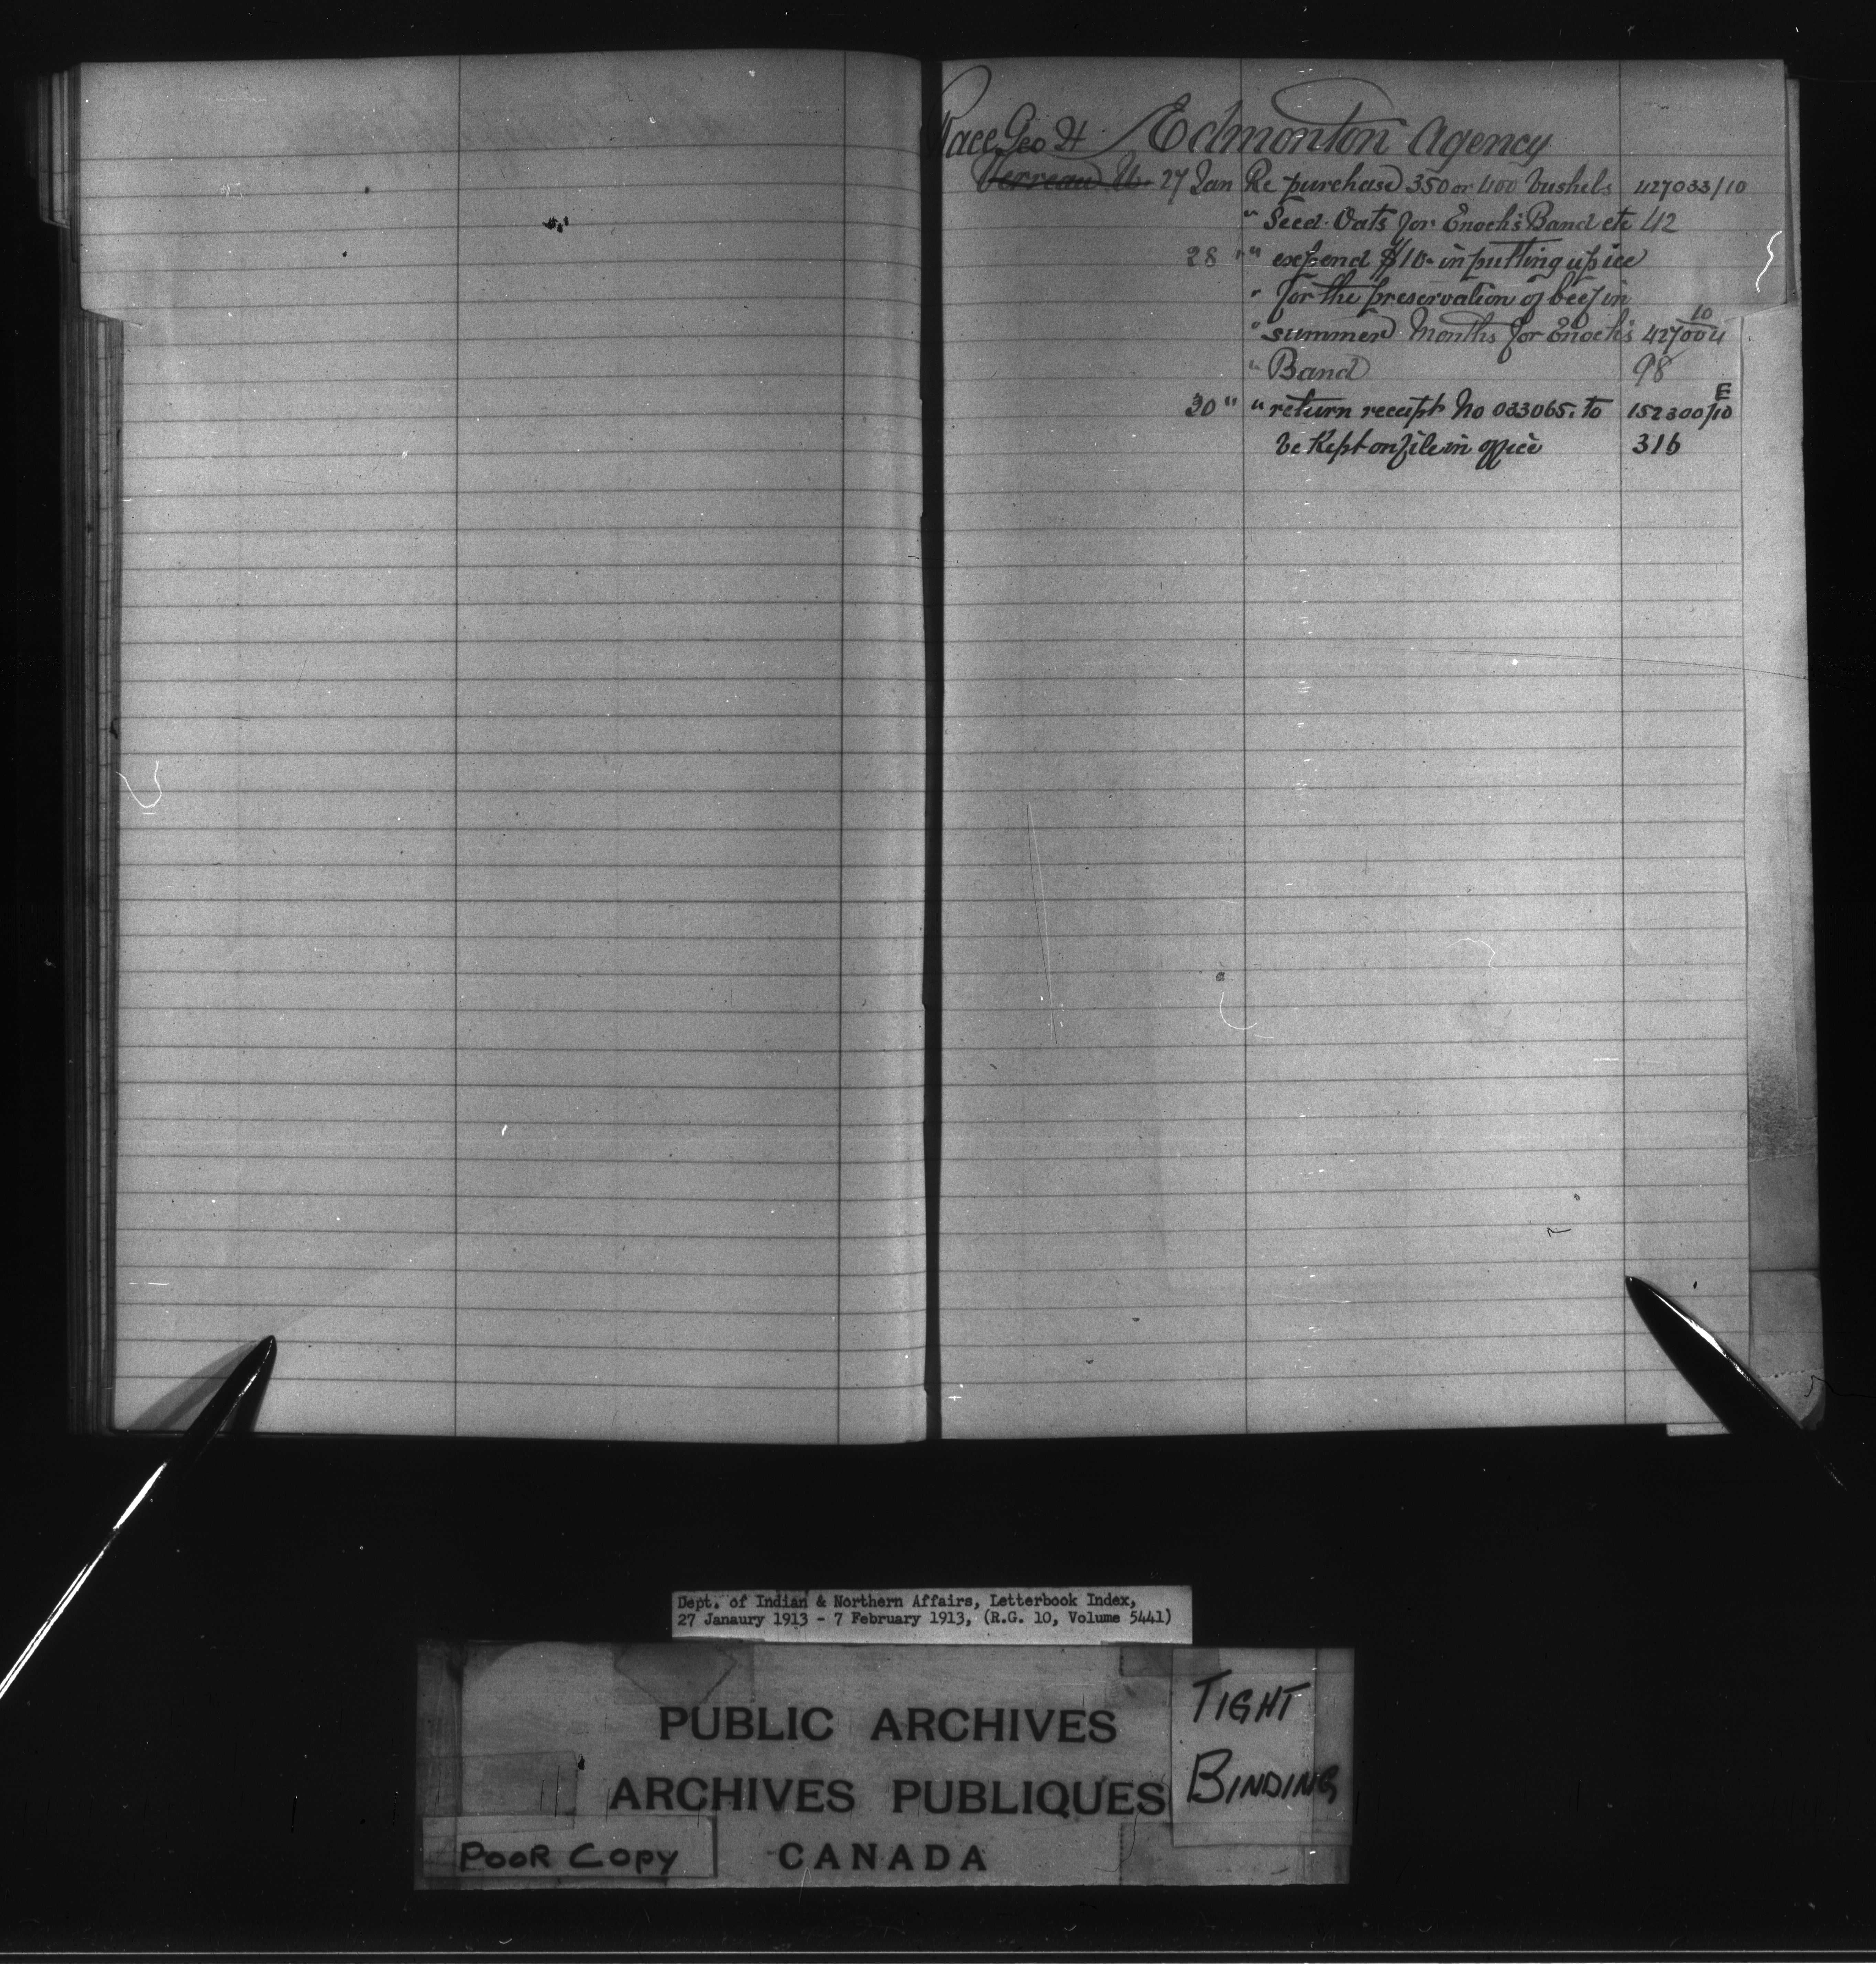 Race Geo H. Edmonton Agency
Verreau U. 27 Jan Re purchase 350 or 400 bushels 427033/10
" Seed Oats for Enoch's Band etc 42
28 " " expend $10- in putting up ice
" for the preservation of beef in
" summer Months for Enoch's 427004/10
" Band 98
30 " " return receipt No 033065. to 152300/10 E
be Kept on file in office 316
Dept. of Indian & Northern Affairs, Letterbook Index,
27 Janaury 1913 - 7 February 1913, (R.G. 10, Volume 5441)
PUBLIC ARCHIVES
ARCHIVES PUBLIQUES
CANADA
TIGHT
BINDING
POOR COPY